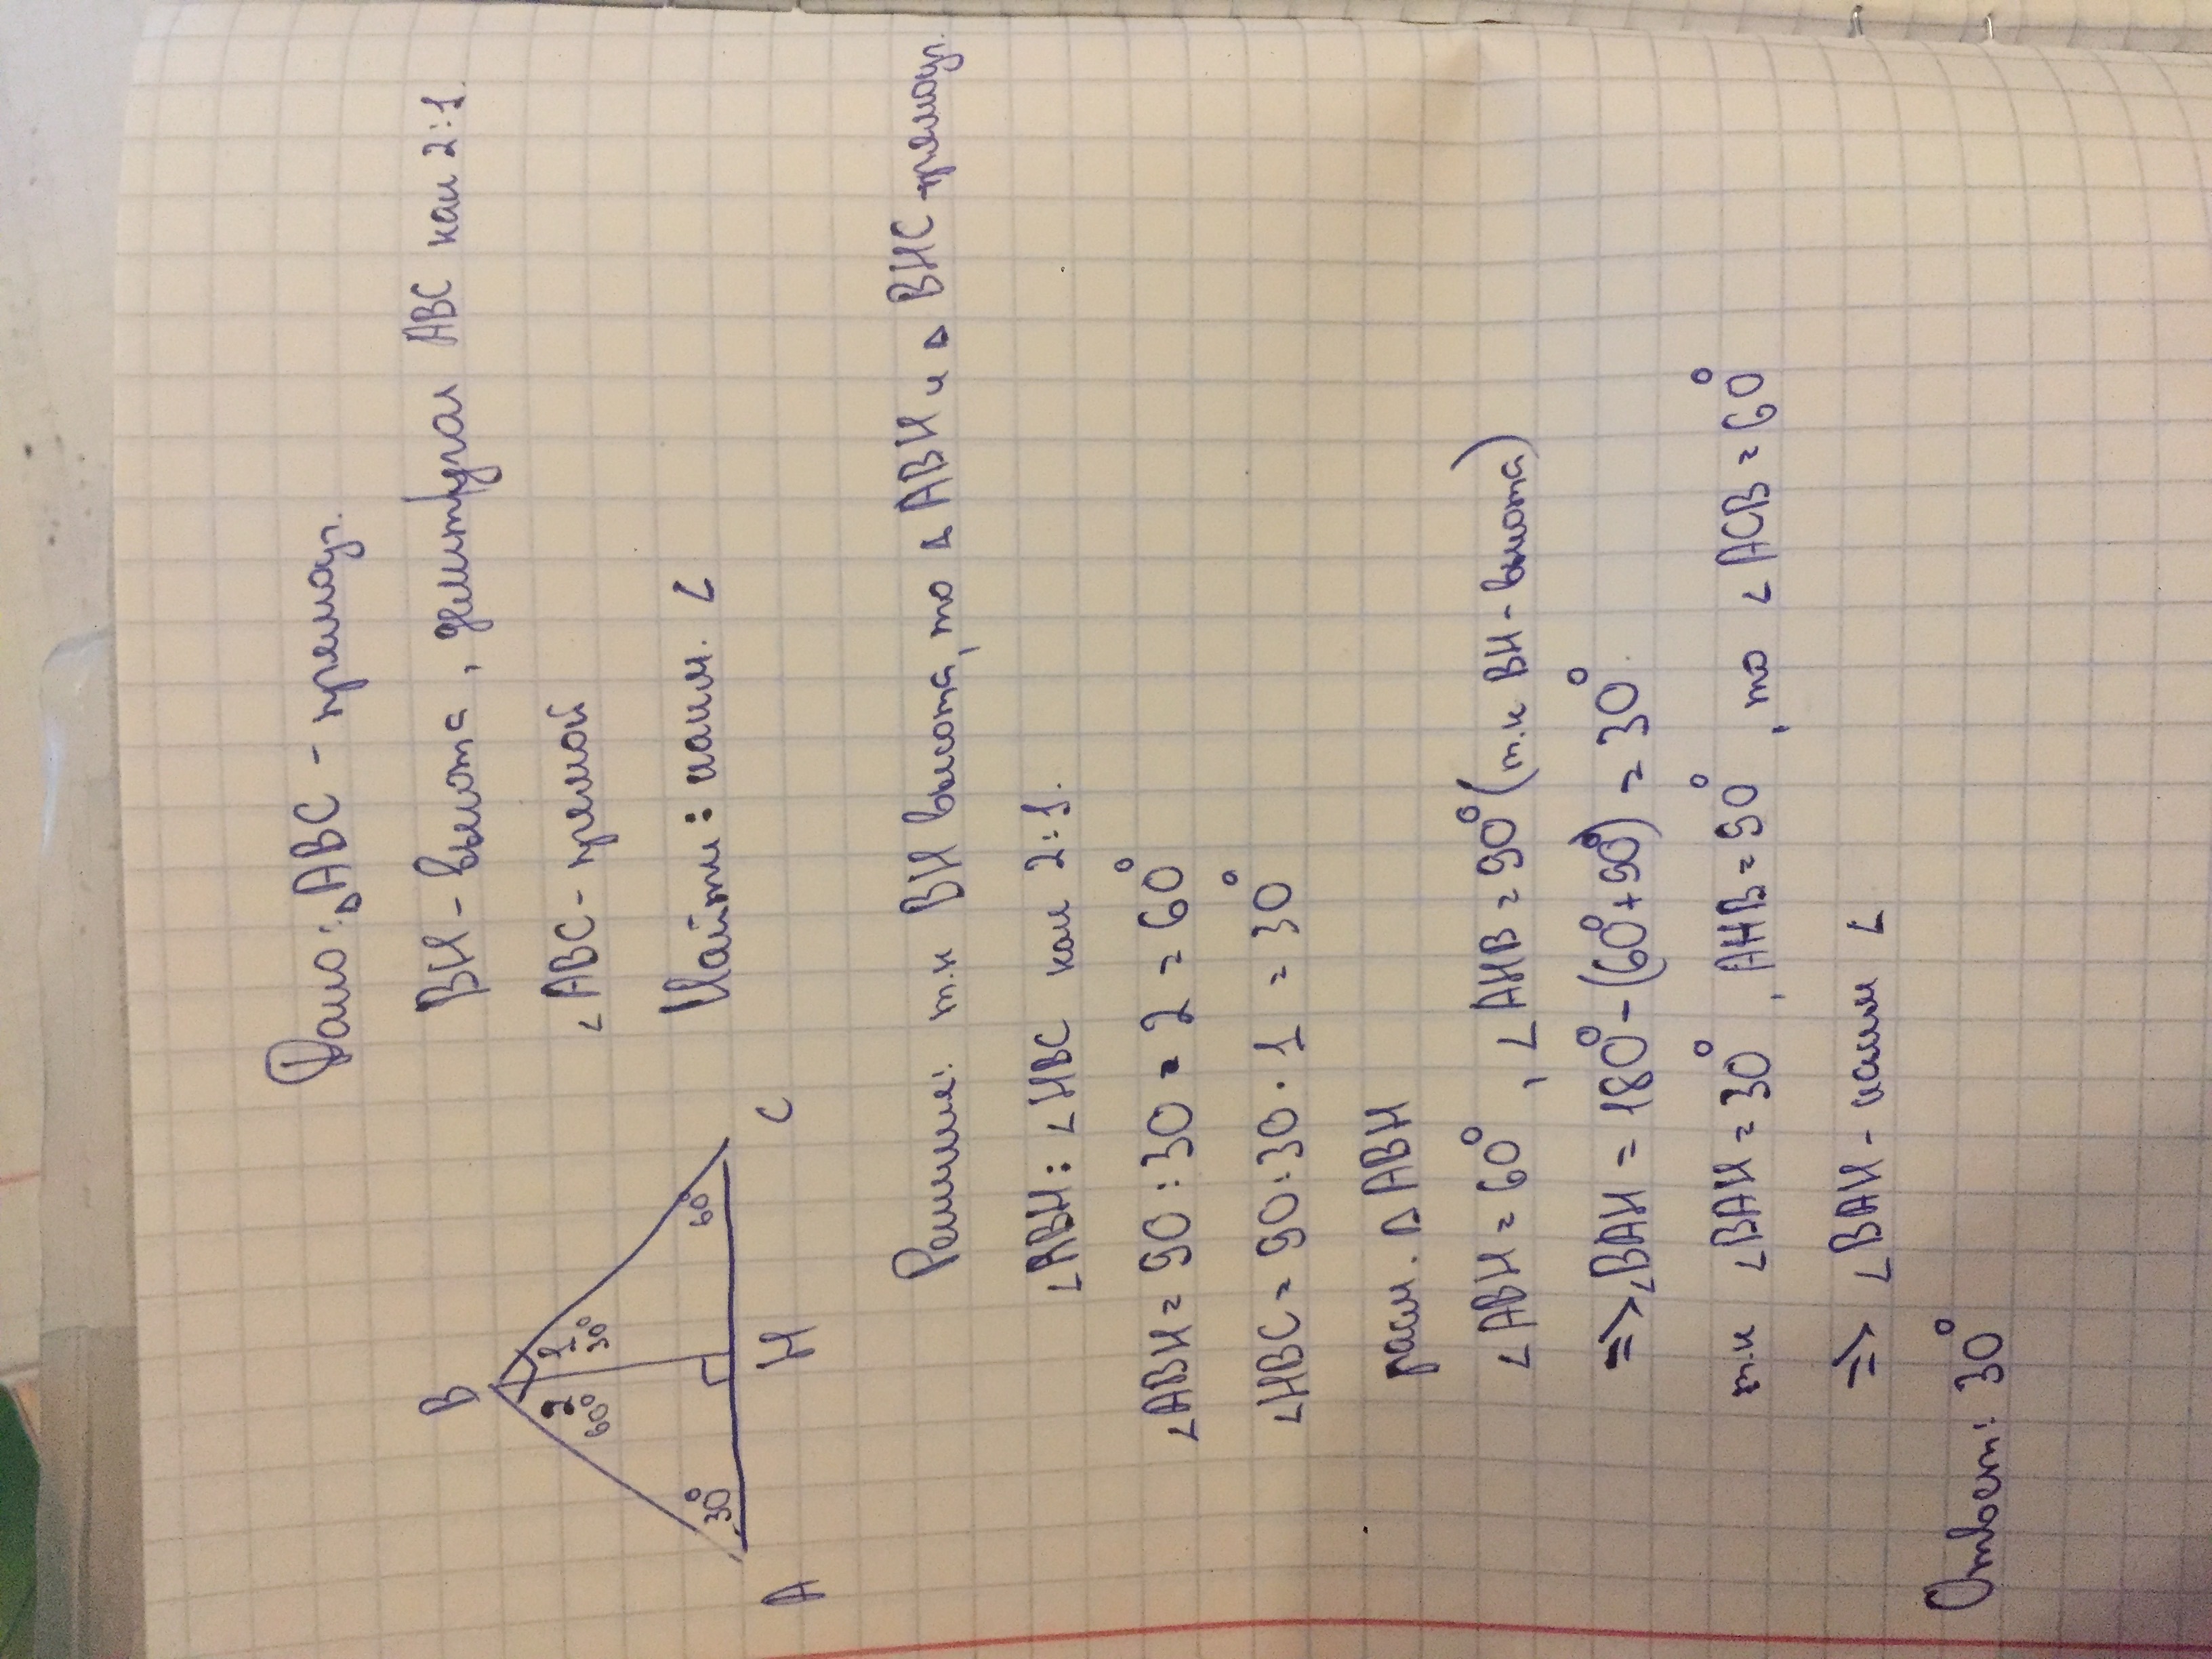 Дано: △ABC - прямоуг.
BH - высота, делит угол ABC как 2:1.
∠ABC - прямой
Найти: наим. ∠
B
2 1
60° 30°
30° 60°
A H C
Решение: т.к BH высота, то △ABH и △BHC - прямоуг.
∠ABH : ∠HBC как 2:1.
∠ABH = 90 : 30 · 2 = 60°
∠HBC = 90 : 30 · 1 = 30°
расм. △ABH
∠ABH = 60°, ∠AHB = 90° (т.к BH - высота)
=> ∠BAH = 180° - (60° + 90°) = 30°.
т.к ∠BAH = 30°, AHB = 90°, то ∠ACB = 60°
=> ∠BAH - наим ∠
Ответ: 30°